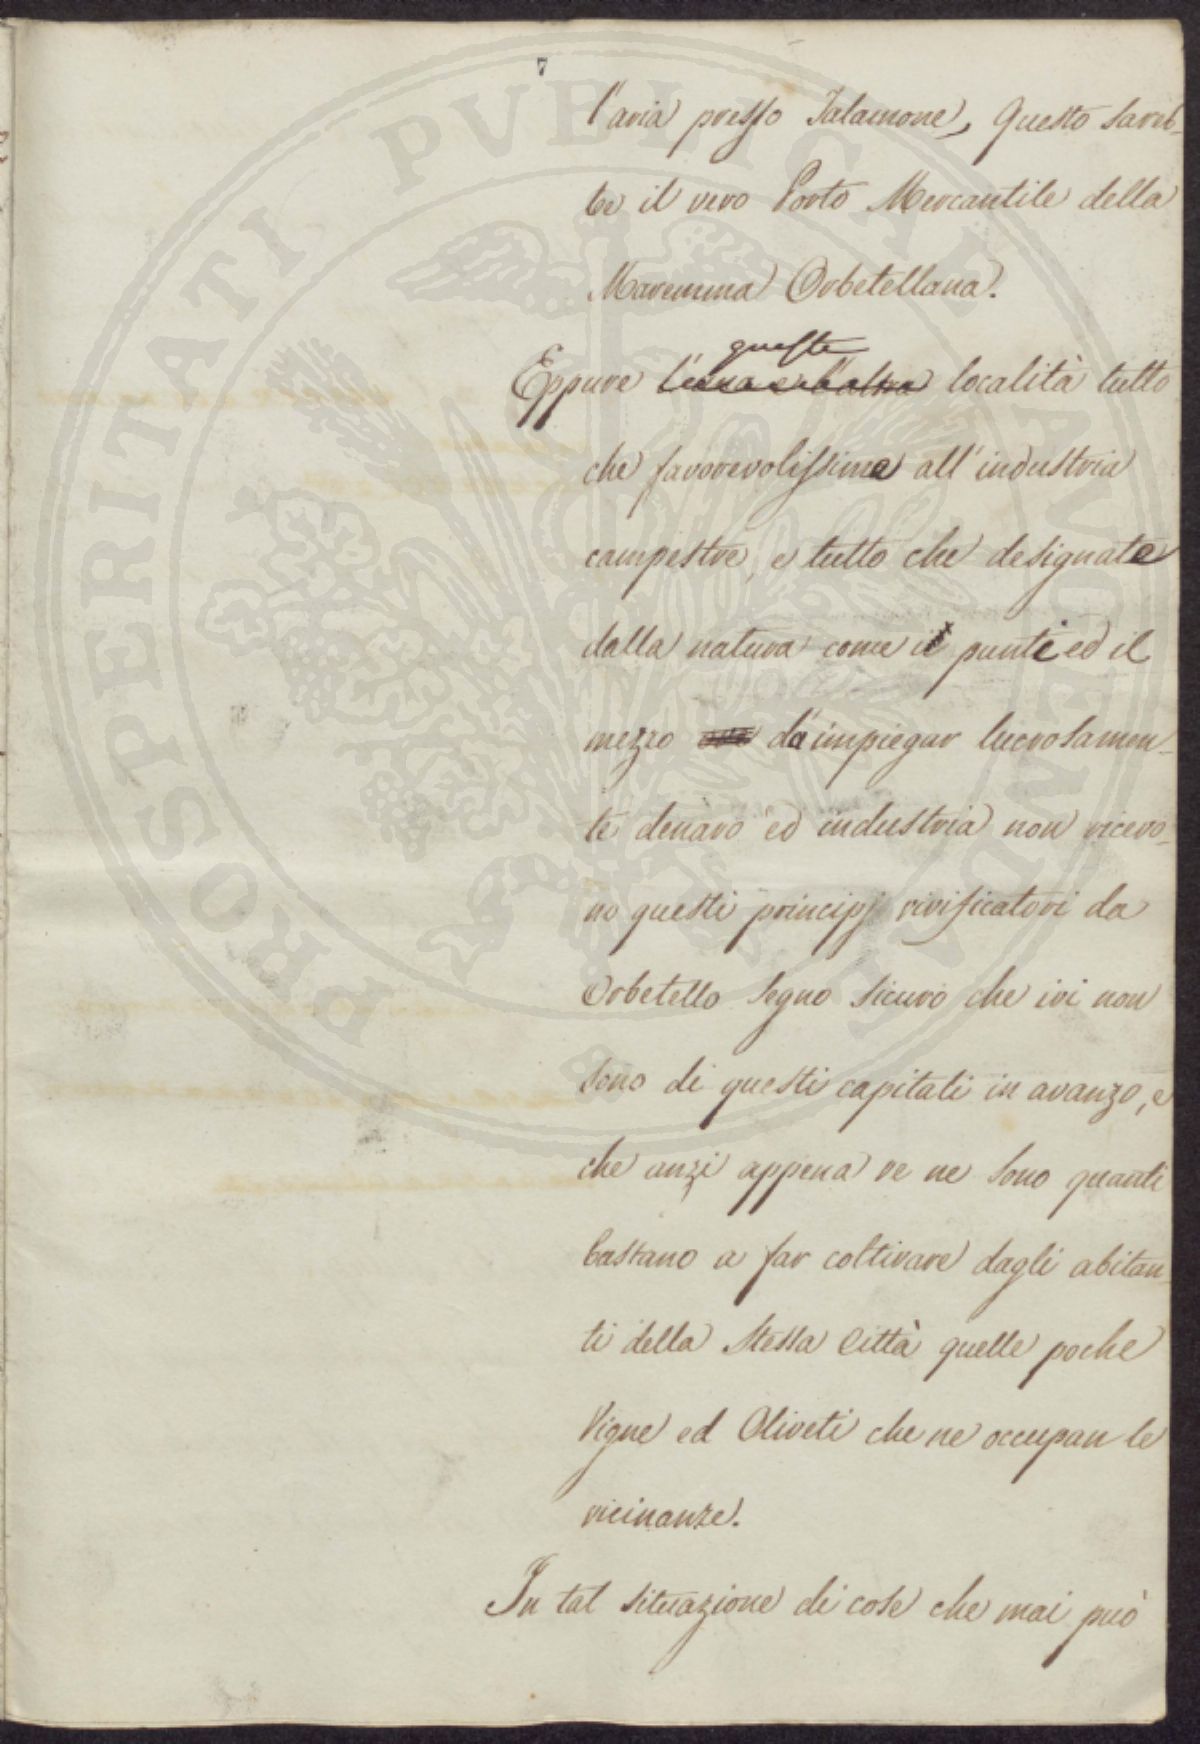 7
l'aria presso Talamone, Questo sareb-
be il vero Porto Mercantile della
Maremma Orbetellana.
queste
Eppure l'una e l'altra località tutto
che favorevolissime all'industria
campestre, e tutto che designate
dalla natura come i punti ed il
mezzo da impiegar lucrosamen-
te denaro ed industria non ricevo-
no questi principj vivificatori da
Orbetello segno sicuro che ivi non
sono di questi capitali in avanzo, e
che anzi appena ve ne sono quanti
bastano a far coltivare dagli abitan-
ti della stessa Città quelle poche
Vigne ed Oliveti che ne occupan le
vicinanze.
In tal situazione di cose che mai può
PROSPERITATI PVBLICAE AVGENDAE